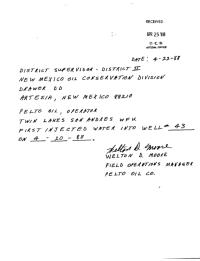 RECEIVED
APR 25 '88
O. C. D.
ARTESIA, OFFICE
DATE: 4-22-88
DISTRICT SUPERVISOR - DISTRICT II
NEW MEXICO OIL CONSERVATION DIVISION
DRAWER DD
ARTEZIA, NEW MEXICO 88210
PELTO OIL, OPERATOR
TWIN LAKES SAN ANDRES WFU
FIRST INJECTED WATER INTO WELL # 43
ON 4 - 20 - 88.
Welton D. Moore
WELTON D. MOORE
FIELD OPERATIONS MANAGER
PELTO OIL CO.